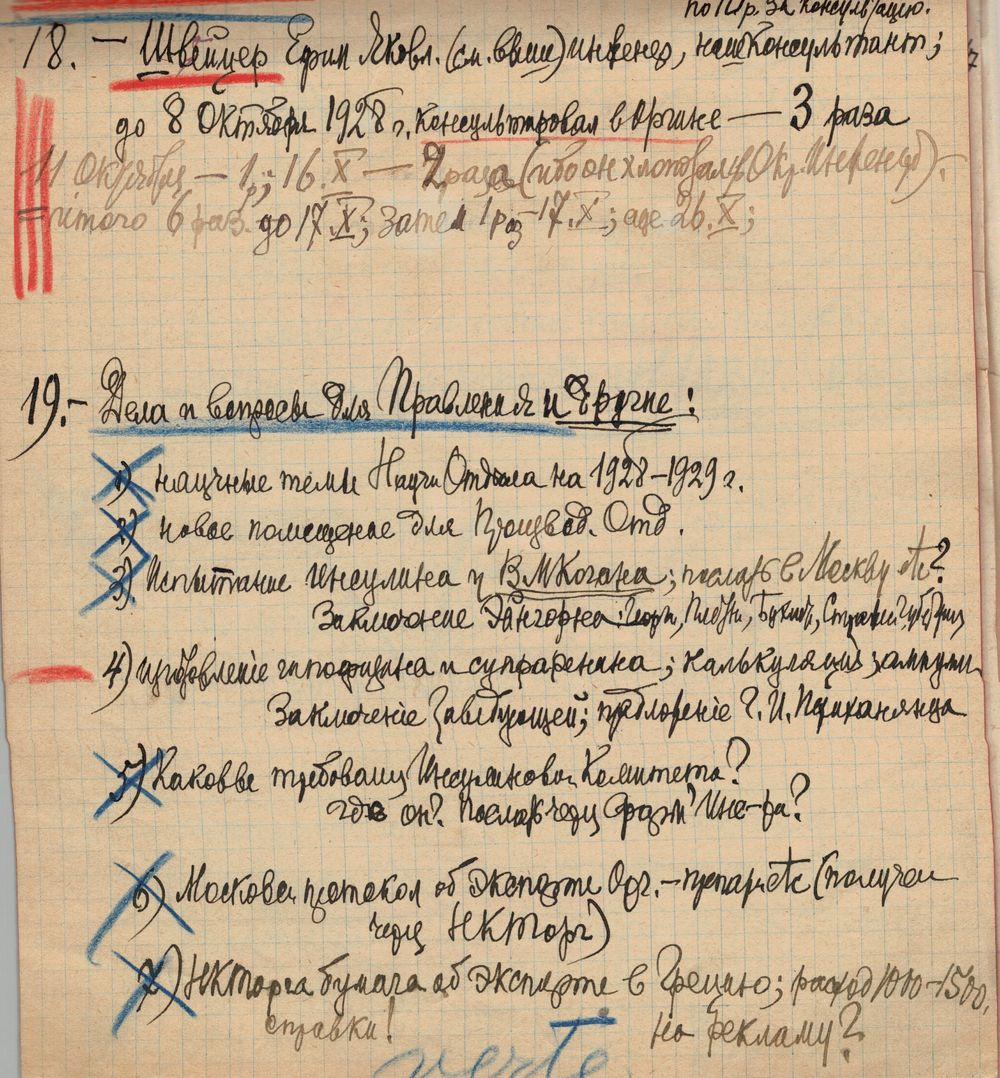 по 11 р. за консультацию.
18. – Швейцер Ефим Яковл. (см. выше) инженер, наш консультант;
до 8 Октября 1928 г. консультировал в Оргине — 3 раза
11 Октября – 1 р.; 16.X — 2 раза (ибо он хлопотал у Окр. Инженер).
= итого 6 раз. до 17.X; затем 1 раз – 17.X; 26.X;
19.- Дела и вопросы для Правления и другие:
1) научные темы Научн Отдела на 1928–1929 г.
2) новое помещение для Производ. Отд.
3) Испытание Инсулина у В М Когана; послать в Москву?
Заключение
4) изготовленіе гипофизина и супраренина; калькуляция, ампулы
Заключеніе Заведующей; предложеніе Г. И. Периханянца
5) Каковы требования Инсулинового Комитета?
где он? Послать через Фарм Ин-та?
6) Московск протокол об экспорте Орг.–препаратѣ (получен
через НКТорг)
7) НКТорга бумага об экспорте в Грецию; расход 1000–1500,
справки! на рекламу?
verte